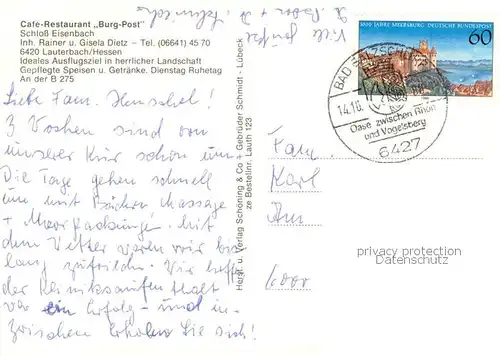 Cafe-Restaurant „Burg-Post"
Schloß Eisenbach
Inh. Rainer u. Gisela Dietz – Tel. (06641) 45 70
6420 Lauterbach/Hessen
Ideales Ausflugsziel in herrlicher Landschaft
Gepflegte Speisen u. Getränke. Dienstag Ruhetag
An der B 275
Viele Grüße
Liebe Fam. Henschel!
3 Wochen sind von
unserer Kur schon um.
Die Tage gehen schnell
um mit Bädern Massage
+ Moorpackungen. Mit
dem Wetter waren wir bis-
lang zufrieden. Wir hoffen
der Kuraufenthalt
war ein Erfolg – und in-
zwischen erholen Sie sich!
Herst. u. Verlag Schöning & Co + Gebrüder Schmidt - Lübeck
ze Bestellnr. Lauth 123
1000 JAHRE MEERSBURG DEUTSCHE BUNDESPOST
60
BAD SALZSCHLIRF
14.10.
Oase zwischen Rhön
und Vogelsberg
6427
Fam.
Karl
Am
6000
privacy protection
Datenschutz